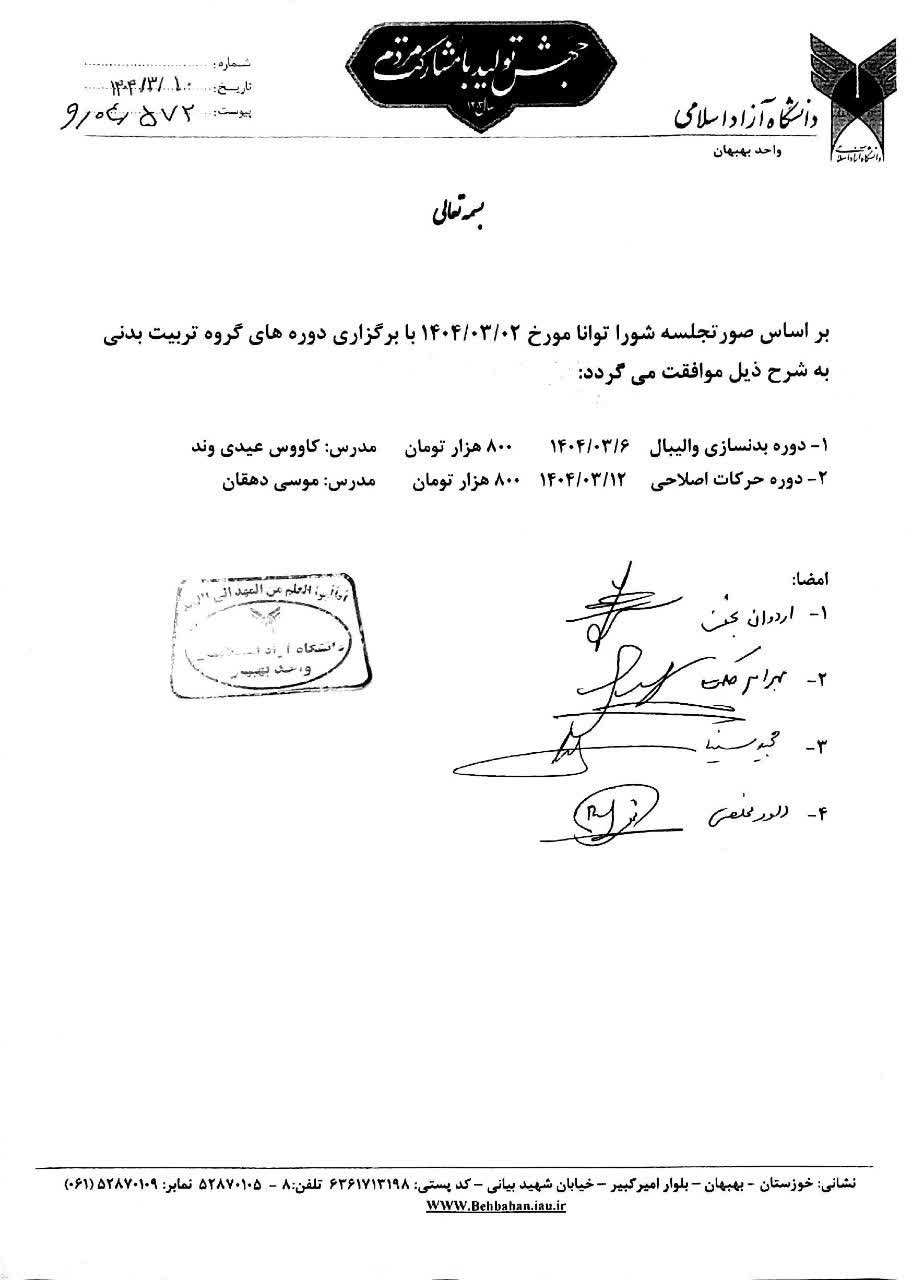 جهش تولید با مشارکت مردم
سال ۱۴۰۳
دانشگاه آزاد اسلامی
واحد بهبهان
دانشگاه آزاد اسلامی
شماره:
تاریخ: ۱۴۰۴/۳/۱۰
پیوست:
بسمه تعالی
بر اساس صورتجلسه شورا توانا مورخ ۱۴۰۴/۰۳/۰۲ با برگزاری دوره های گروه تربیت بدنی
به شرح ذیل موافقت می گردد:
۱- دوره بدنسازی والیبال ۱۴۰۴/۰۳/۶ ۸۰۰ هزار تومان مدرس: کاووس عیدی وند
۲- دوره حرکات اصلاحی ۱۴۰۴/۰۳/۱۲ ۸۰۰ هزار تومان مدرس: موسی دهقان
امضا:
۱- اردوان
۲- بهرام
۳- مجید
۴-
دانشگاه آزاد اسلامی
واحد
نشانی: خوزستان - بهبهان – بلوار امیرکبیر – خیابان شهید بیانی – کد پستی: ۶۳۶۱۷۱۳۱۹۸ تلفن:۸ - ۵۲۸۷۰۱۰۵ نمابر: ۵۲۸۷۰۱۰۹ (۰۶۱)
WWW.Behbahan.iau.ir